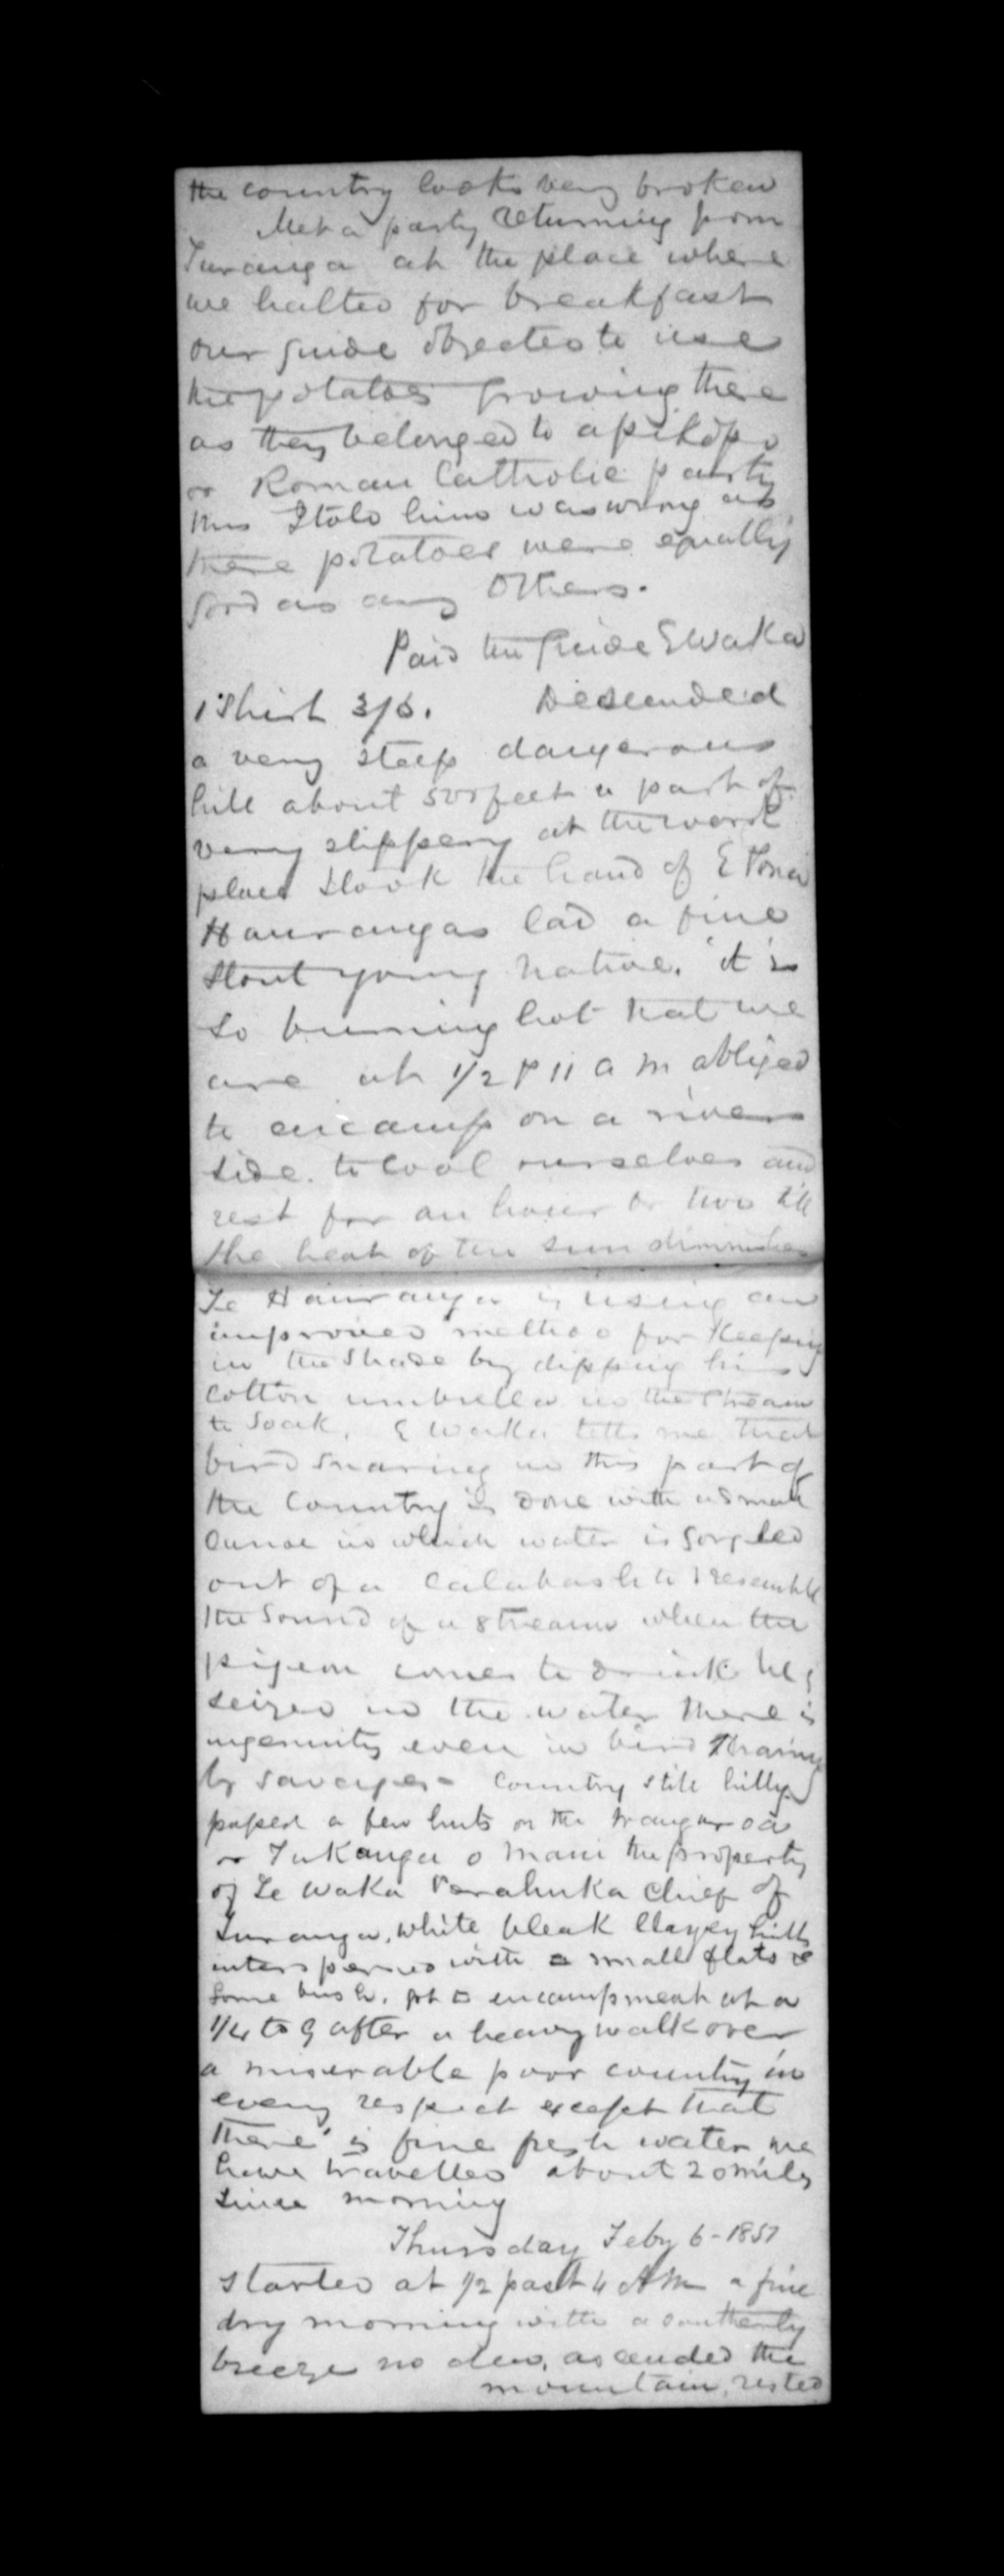 the country looks very broken
Met a party returning from
Turanga at the place where
we halted for breakfast
our guide objected to use
the potatoes growing there
as they belonged to a pikopo
or Roman Catholic party
this I told him was wrong as
these potatoes were equally
good as any others.
Paid the Guide E Waka
1 Shirt 3/6. Descended
a very steep dangerous
hill about 500 feet a part of
very slippery at the worst
place I took the hand of E
Haurangas lad a fine
stout young native. it is
so burning hot that we
are at 1/2 P 11 A M obliged
to encamp on a river
side to cool ourselves and
rest for an hour or two till
the heat of the sun diminishes
Te Hauranga is using an
improved method for keeping
in the shade by dipping his
cotton umbrella in the stream
to soak. E Waka tells me that
bird snaring in this part of
the country is done with a small
canoe in which water is
out of a calabash to resemble
the sound of a stream when the
pigeon comes to drink he is
seized in the water there is
ingenuity even in bird
by savages - country still hilly
passed a few huts on the
or Tukanga o Maui the property
of Te Waka Perahuka chief of
Turanga, white bleak clayey hills
interspersed with small flats &
some bush. got to encampment at a
1/4 to 9 after a heavy walk over
a miserable poor country in
every respect except that
there is fine fresh water we
have travelled about 20 miles
since morning
Thursday Feby 6 - 1851
started at 1/2 past 4 AM a fine
dry morning with a southerly
breeze no dew, ascended the
mountain, rested